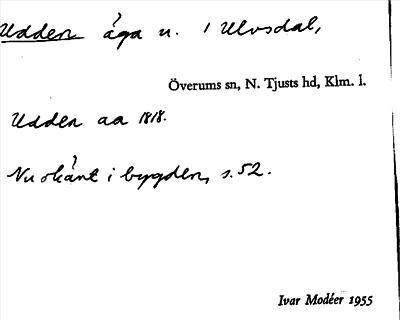 Udden åga u. 1 Ulvsdal,
Överums sn, N. Tjusts hd, Klm. l.
Udden aa 1818.
Nu okänt i bygden, s. 52.
Ivar Modéer 1955